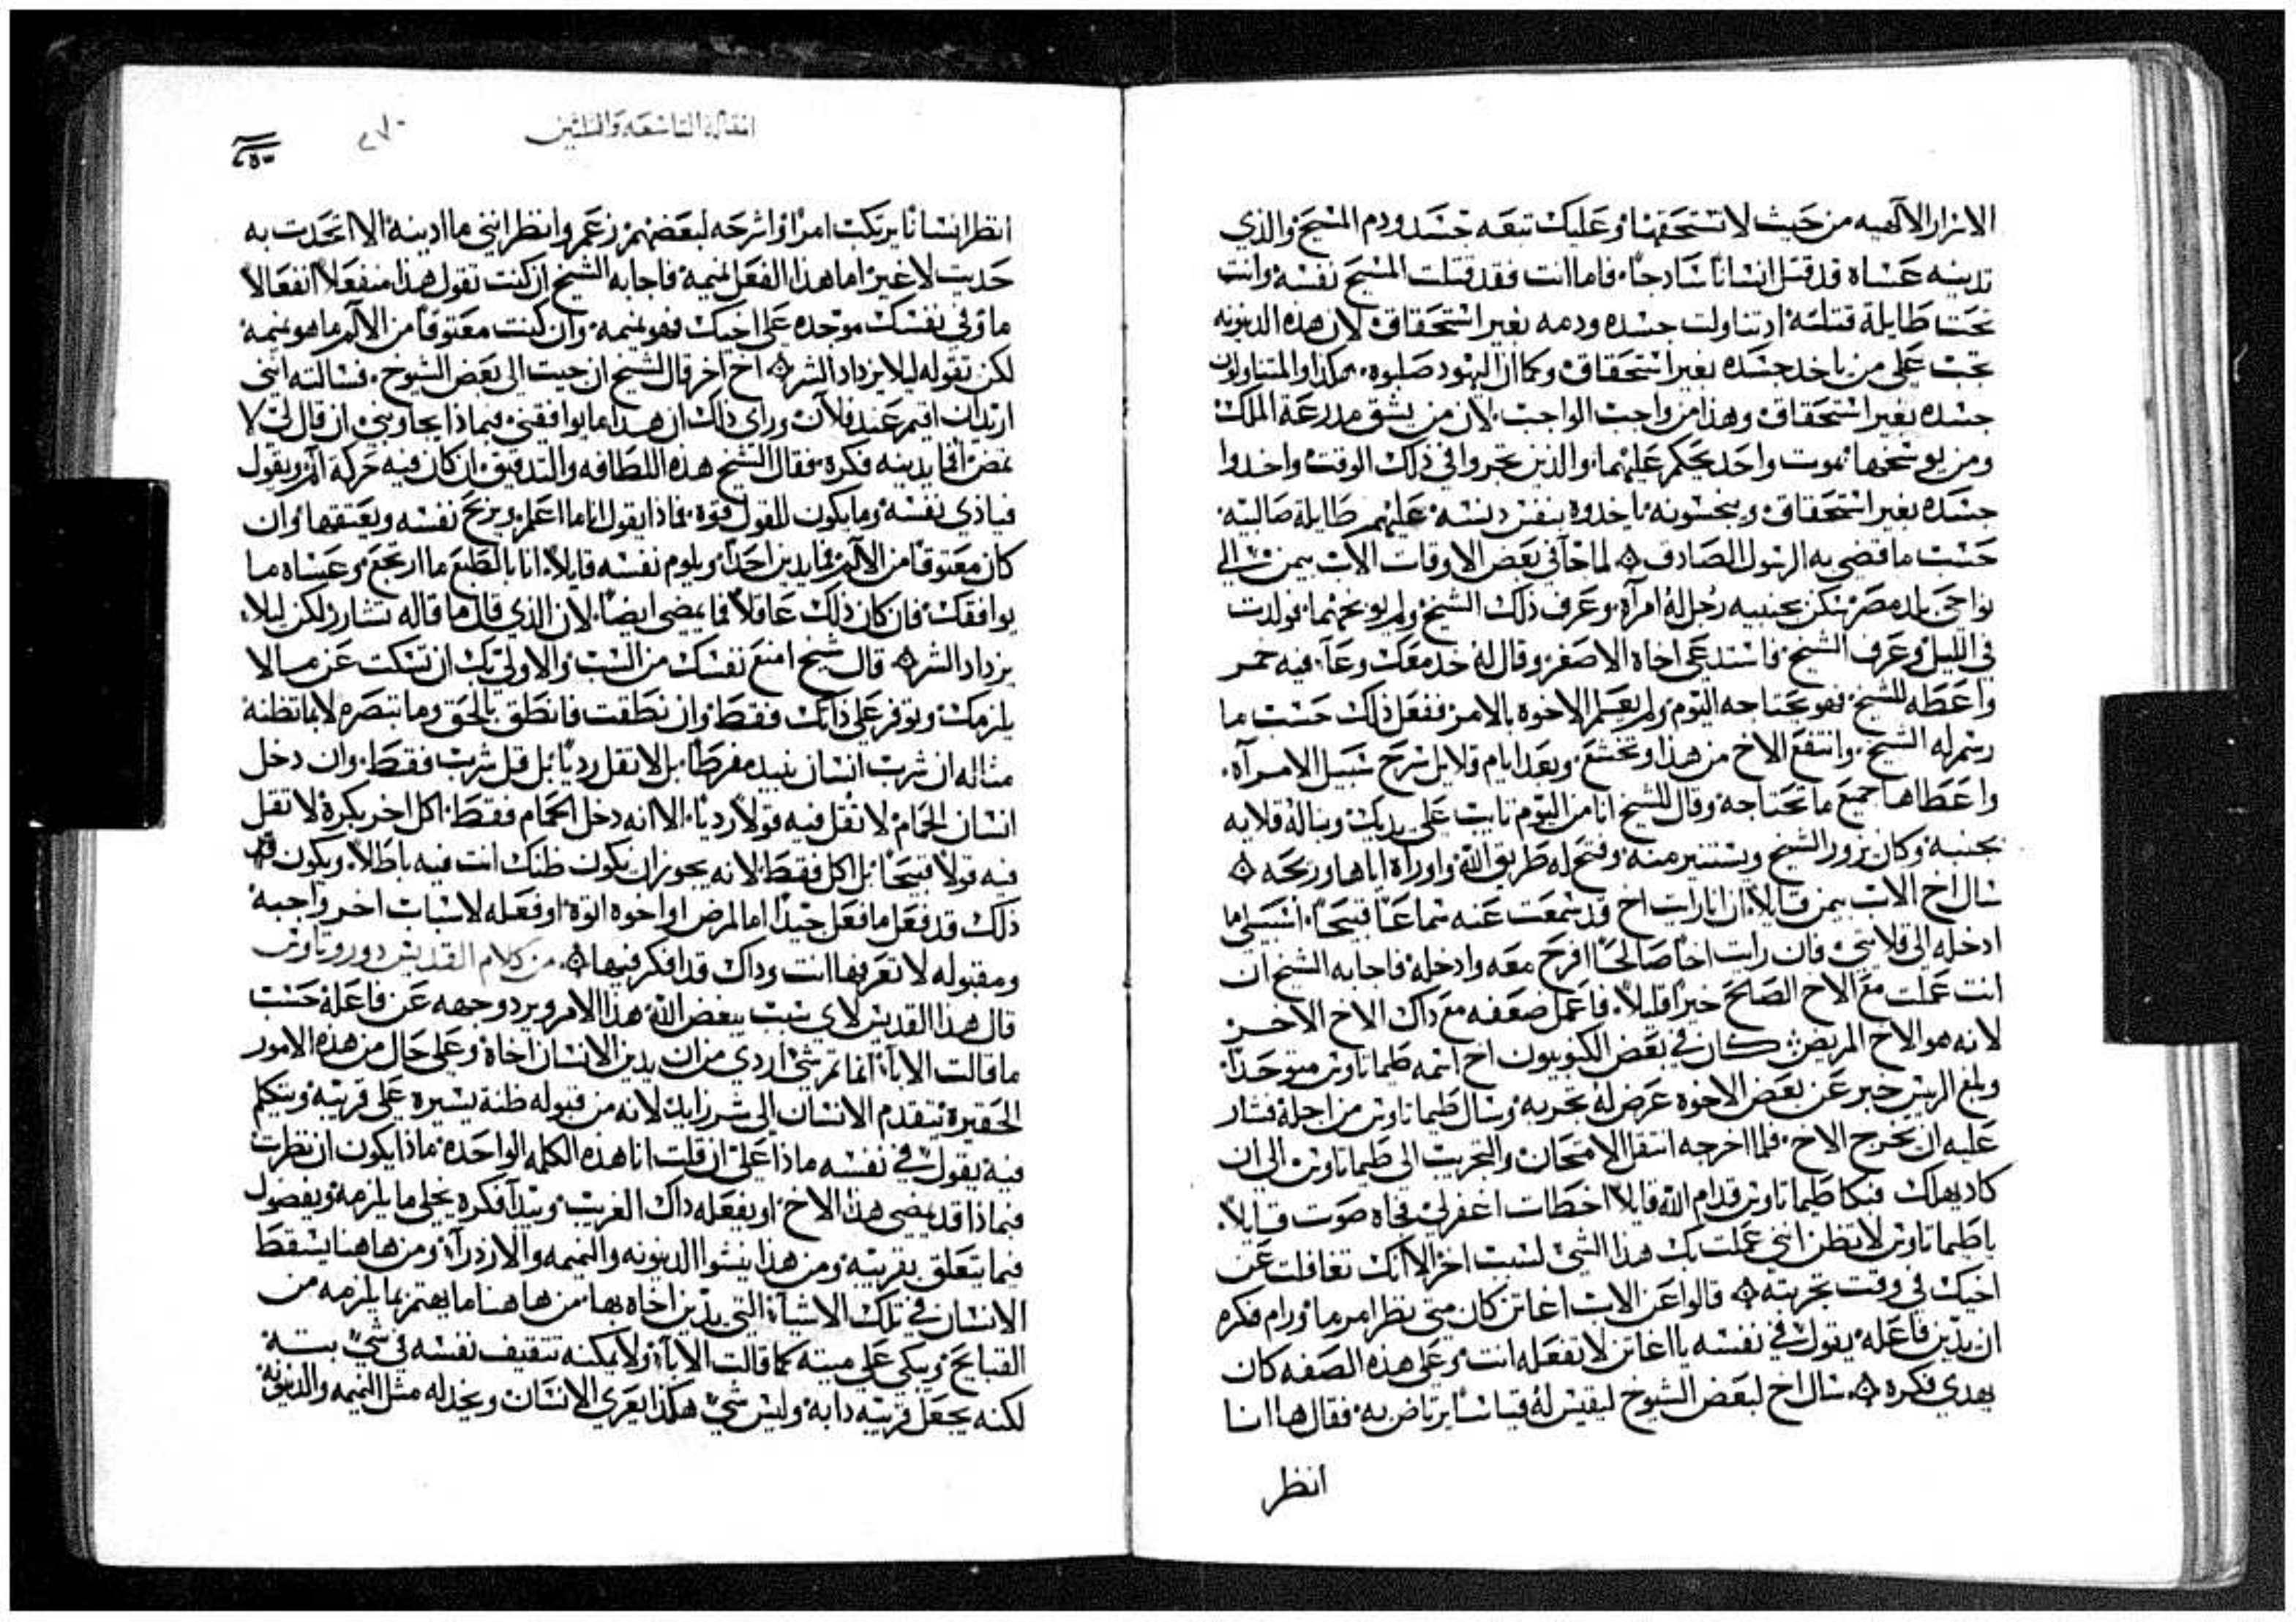 الاسرار الالهيه من حيث لا تستحقها وعليك تبعه جسد ودم المسيح والذي
تدينه عساه قد قتل انسانا سادجا فاما انت فقد قتلت المسيح نفسه وانت
تحت طايلة قتلته اد تناولت جسده ودمه بغير استحقاق لان هذه الدينونه
تجب على من ياخد جسده بغير استحقاق وكما ان اليهود صلبوه هكدا والمتناولون
جسده بغير استحقاق وهذا من واجب الواجب لان من يشق مدرعة الملك
ومن يوسخها بموت واحد يحكم عليهما والذين تجروا في ذلك الوقت واخدوا
جسده بغير استحقاق وينجسونه ياخدوه بنفس دنسه عليهم طايلة صالبيه
حسب ما قضى به الرسول الصادق ۞ لما جا في بعض الاوقات الاب بيمن الى
نواحي بلد مصر سكن بجنبه رجل له امرآه وعرف ذلك الشيخ ولم يوبخهما فولدت
في الليل وعرف الشيخ فاستدعى اخاه الاصغر وقال له خد معك وعآ فيه خمر
واعطه للشيخ فهو يحتاجه اليوم ولم يعلم الاخوه بالامر ففعل ذلك حسب ما
رسم له الشيخ وانتفع الاخ من هذا وتخشع وبعد ايام قلايل سرح سبيل الامرآه
واعطاها جميع ما تحتاجه وقال للشيخ انا من اليوم تايب على يديك وبنا له قلايه
بجنبه وكان يزور الشيخ ويستنير منه وفتح له طريق الله واوراه اياها وربحه ۞
سال اخ الاب بيمن قايلا ان انا رايت اخ قد سمعت عنه سماعا قبيحا
ادخله الى قلايتي فان رايت اخا صالحا افرح معه وادخله فاجابه الشيخ ان
انت عملت مع الاخ الصالح خيرا قليلا فاعمل ضعفه مع داك الاخ الاخر
لانه هو الاخ المريض كان في بعض الكنوبيون اخ اسمه طيماتاوس متوحدا
وبلغ الريس خبر عن بعض الاخوه عرض له تجربه وسال طيماتاوس من اجله فشار
عليه ان يخرج الاخ فلما اخرجه انتقل الامتحان والتجريب الى طيماتاوس الى ان
كاد يهلك فبكا طيماتاوس قدام الله قايلا اخطات اغفر لي فجاه صوت قايلا
يا طيماتاوس لا تظن انني عملت بك هذا الشي لسبب اخر الا انك تغافلت عن
اخيك في وقت تجربته ۞ قالوا عن الاب اغاتن كان متى نظر امر ما ورام فكره
ان يدين فاعله يقول في نفسه يا اغاتن لا تفعله انت وعلى هذه الصفه كان
يهدي فكره ۞ سال اخ لبعض الشيوخ ليقيس له قياسا يرتاض به فقال ها انا
انظر
المقاله التاسعه والثلثين
انظر انسانا يرتكب امرا واشرحه لبعضهم زعم وانظر انني ما ادينه الا اتحدث به
حديث لا غير اما هذا الفعل نميمه فاجابه الشيخ ان كنت تقول هذا منفعلا انفعالا
ما وفي نفسك موجده على اخيك فهو نميمه وان كنت معتوقا من الالم ما هو نميمه
لكن تقوله ليلا يزداد الشر ۞ اخ اخر قال لشيخ ان جيت الى بعض الشيوخ فسالته انني
اريد ان اقيم عند فلان وراى ذلك ان هدا ما يوافقني فبماذا يجاوبني ان قال لي لا
تمض افما يدينه فكره فقال الشيخ هذه اللطافه والتدقيق ان كان فيه حركة الم ويقول
فياذي نفسه وما يكون للقول قوه فماذا يقول انا ما اعلم ويربح نفسه ويعتقها وان
كان معتوقا من الالم فما يدين احدا ويلوم نفسه قايلا انا بالطبع ما ارتجع وعساه ما
يوافقك فان كان ذلك عاقلا فما يمضى ايضا لان الذي قال ما قاله لكن ليلا
يزداد الشر ۞ قال شيخ امنع نفسك من السب والاولى بك ان تسكت عن ما لا
يلزمك وتوفر على ذاتك فقط وان نطقت فانطق بالحق وما تبصره لا بما تظنه
مثاله ان شرب انسان نبيد مفرطا بل لا تقل رديا بل قل شرب فقط وان دخل
انسان الحمام لا تقل فيه قولا رديا الا انه دخل الحمام فقط اكل اخر بكره لا تقل
فيه قولا قبيحا بل اكل فقط لانه يجوز ان يكون ظنك انت فيه باطلا ويكون
ذلك قد فعل ما فعل جيدا اما لمرض او اخوه اتوه او فعله لاسباب اخر واجبه
ومقبوله لا تعرفها انت وداك قد افكر فيها ۞ من كلام القديس دوروتاوس
قال هذا القديس لاي سبب يبغض الله هذا الامر ويرد وجهه عن فاعله حسب
ما قالت الابآ انما ثم شي اردي من ان يدين الانسان اخاه وعلى حال من هذه الامور
الحقيره يتقدم الانسان الى شر زايد لانه من قبوله ظنة يسيره على قريبه ويتكلم
فيه يقول في نفسه ماذا علي ان قلت انا هذه الكلمه الواحده ماذا يكون ان نظرت
فبماذا قد يمضى هذا الاخ او يفعله داك الغريب ويبدآ فكره يخلى ما يلزمه ويفضول
فيما يتعلق بقريبه ومن هذا ينشوا الدينونه والنميمه والازدرآ ومن هاهنا يسقط
الانسان في تلك الاشيآ التي يدين اخاه بها من هاهنا ما يهتم بما يلزمه من
القبايح ويبكي على ميته كما قالت الابآ ولا يمكنه تثقيف نفسه في شي بته
لكنه يجعل قريبه دابه وليس شي هكذا يعري الانسان ويخدله مثل النميمه والدينونه